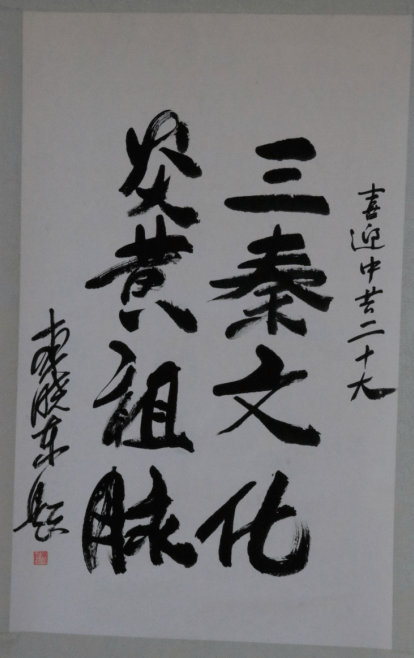 喜迎中共二十大
三秦文化
炎黄祖脉
晓东题